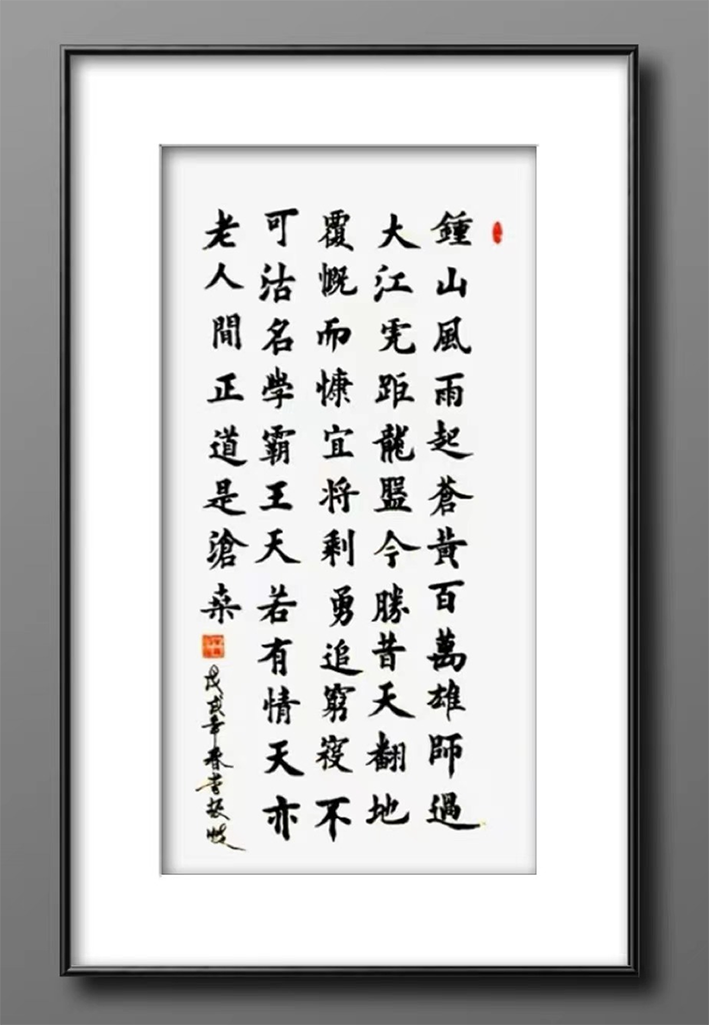 鍾山風雨起蒼黃百萬雄師過
大江虎距龍盤今勝昔天翻地
覆慨而慷宜將剩勇追窮寇不
可沽名學霸王天若有情天亦
老人間正道是滄桑
戊戌年春